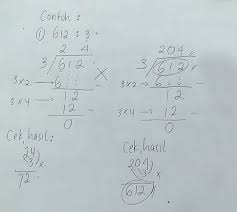 Contoh :
① 612 : 3
2 4
3 / 612
3 x 2 → 6
12
3 x 4 → 12
0
Cek hasil :
24
3 x
72
204
3 / 612
3 x 2 → 6
12
3 x 4 → 12
0
Cek hasil
204
3 x
612